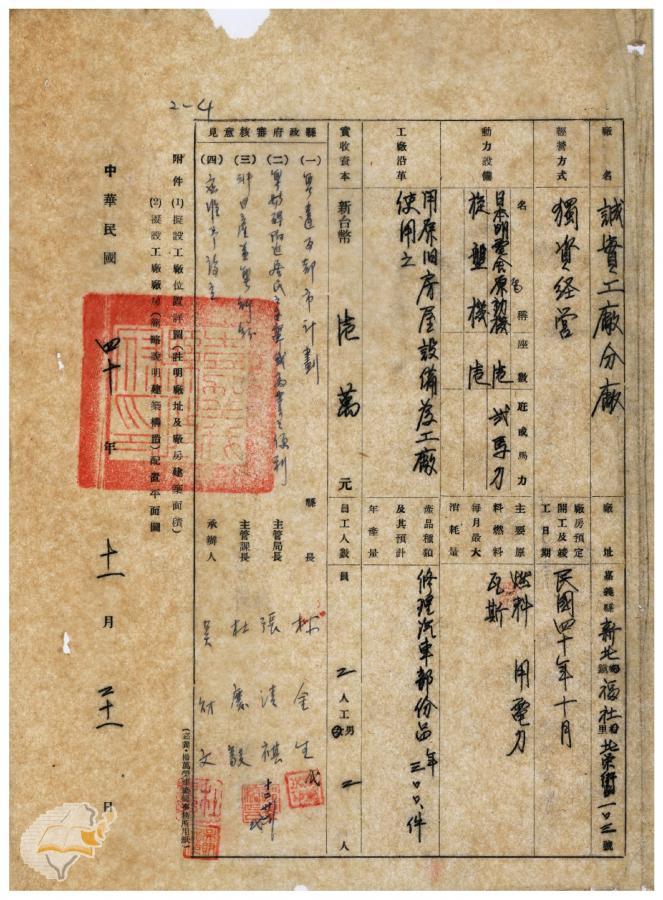 廠名
誠資工廠分廠
廠址
嘉義縣新北鎮福社里北榮街一〇三號
經營方式
獨資経营
廠房預定開工及竣工日期
民國四十年十月
動力設備
名稱 座數 瓩或馬力
日本明電舍原動機 壱 弍馬力
旋盤機 壱
主要原料燃料每月最大消耗量
燃料 用電力
瓦斯
工廠沿革
用原旧房屋設備為工廠
使用之
產品種類及其預計年產量
修理汽車部份品年三〇〇件
實收資本
新台幣 壱萬 元
員工人數
員 二人 工 男 二 人
縣政府審核意見
(一)
都市計劃
(二)
(三)
(四)
縣長 林金生
主管局長 張清祺
主管課長 杜
承辦人 黃財文
附件 (1)擬設工廠位置詳圖(註明廠址及廠房建築面積)
(2)擬設工廠廠房(簡略說明建築構造)配置平面圖
中華民國 四十 年 十一 月 二十一 日
2-4